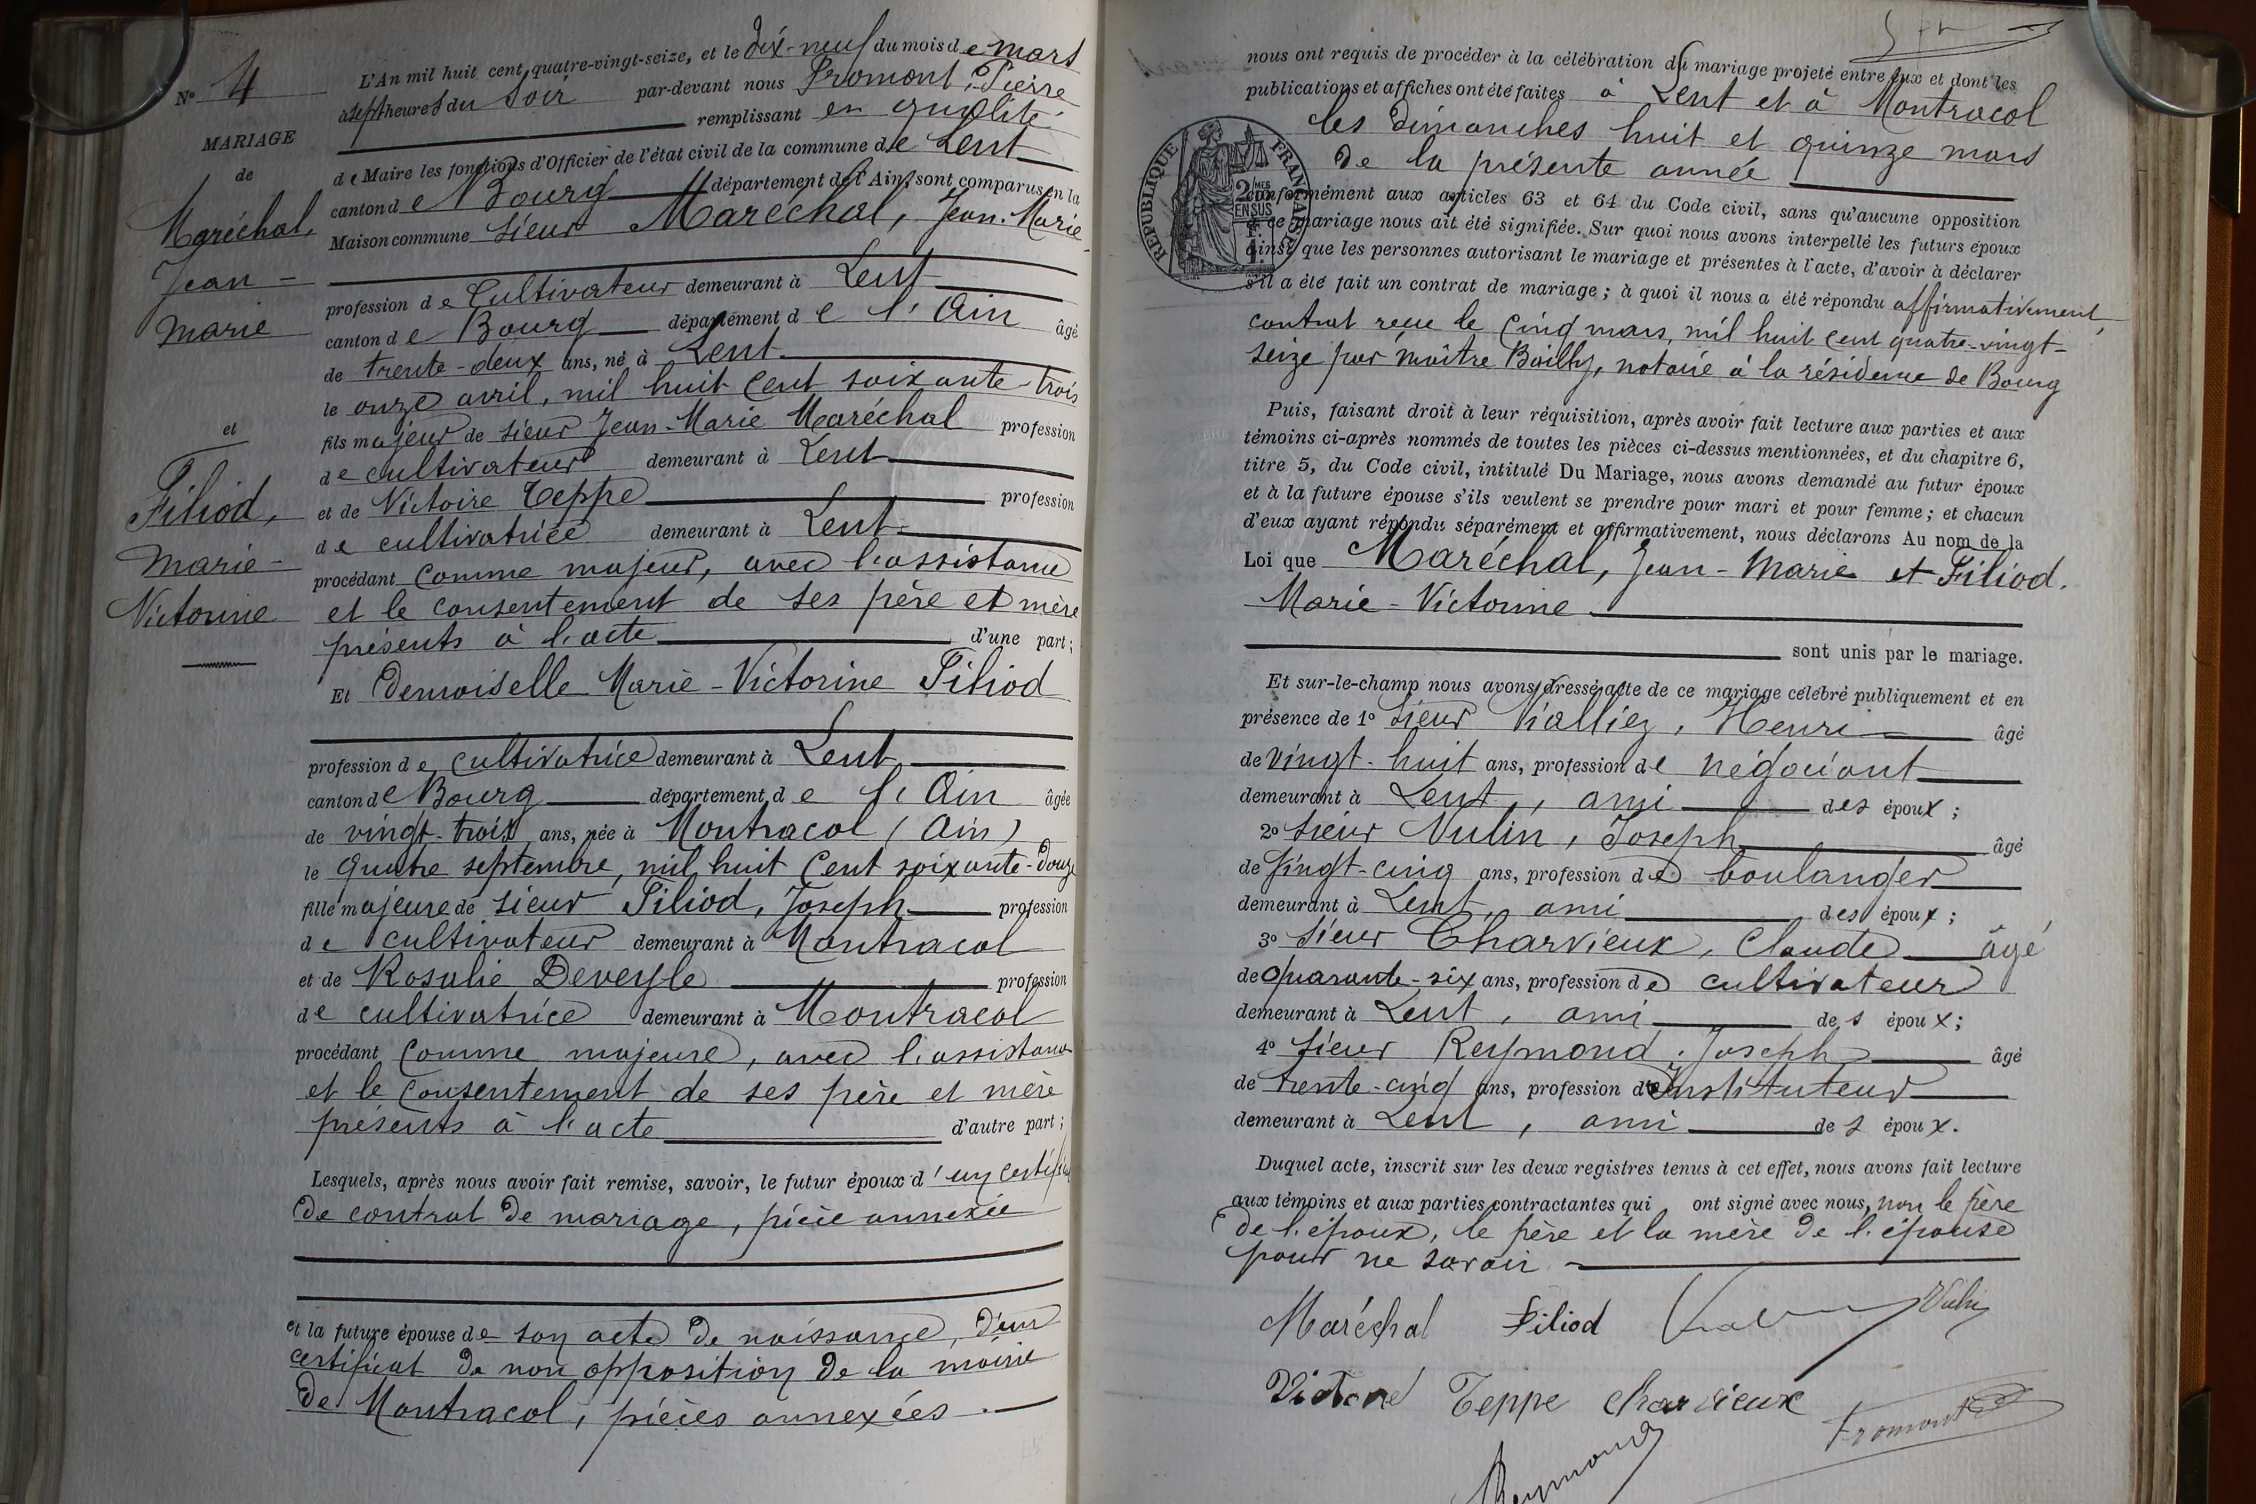 N° 4
MARIAGE
de
Maréchal,
Jean -
Marie
et
Filiod,
Marie -
Victorine
L'An mil huit cent quatre-vingt-seize, et le dix-neuf du mois de mars
à sept heures du soir par-devant nous Fromont, Pierre
remplissant en qualité
de Maire les fonctions d'Officier de l'état civil de la commune de Lent
canton de Bourg département de l'Ain, sont comparus en la
Maison commune sieur Maréchal, Jean-Marie
profession de cultivateur demeurant à Lent
canton de Bourg département de l'Ain âgé
de trente-deux ans, né à Lent
le onze avril, mil huit cent soixante-trois
fils majeur de sieur Jean-Marie Maréchal profession
de cultivateur demeurant à Lent
et de Victoire Teppe profession
de cultivatrice demeurant à Lent
procédant comme majeur, avec l'assistance
et le consentement de ses père et mère
présents à l'acte d'une part;
Et Demoiselle Marie-Victorine Filiod
profession de cultivatrice demeurant à Lent
canton de Bourg département de l'Ain âgée
de vingt-trois ans, née à Montracol (Ain)
le quatre septembre, mil huit cent soixante-douze
fille majeure de sieur Filiod, Joseph profession
de cultivateur demeurant à Montracol
et de Rosalie Deveyle profession
de cultivatrice demeurant à Montracol
procédant comme majeure, avec l'assistance
et le consentement de ses père et mère
présents à l'acte d'autre part;
Lesquels, après nous avoir fait remise, savoir, le futur époux d'un certificat
de contrat de mariage, pièce annexée
et la future épouse de son acte de naissance, d'un
certificat de non opposition de la mairie
de Montracol, pièces annexées.
nous ont requis de procéder à la célébration du mariage projeté entre eux et dont les
publications et affiches ont été faites à Lent et à Montracol
les dimanches huit et quinze mars
de la présente année
RÉPUBLIQUE FRANÇAISE
2 MES
EN SUS
conformément aux articles 63 et 64 du Code civil, sans qu'aucune opposition
à ce mariage nous ait été signifiée. Sur quoi nous avons interpellé les futurs époux
ainsi que les personnes autorisant le mariage et présentes à l'acte, d'avoir à déclarer
s'il a été fait un contrat de mariage; à quoi il nous a été répondu affirmativement,
contrat reçu le cinq mars, mil huit cent quatre-vingt-
seize par maître Bailly, notaire à la résidence de Bourg
Puis, faisant droit à leur réquisition, après avoir fait lecture aux parties et aux
témoins ci-après nommés de toutes les pièces ci-dessus mentionnées, et du chapitre 6,
titre 5, du Code civil, intitulé Du Mariage, nous avons demandé au futur époux
et à la future épouse s'ils veulent se prendre pour mari et pour femme; et chacun
d'eux ayant répondu séparément et affirmativement, nous déclarons Au nom de la
Loi que Maréchal, Jean-Marie et Filiod.
Marie-Victorine
sont unis par le mariage.
Et sur-le-champ nous avons dressé acte de ce mariage célébré publiquement et en
présence de 1° sieur Vialliez, Henri âgé
de vingt-huit ans, profession de négociant
demeurant à Lent, ami des époux;
2° sieur Vulin, Joseph âgé
de vingt-cinq ans, profession de boulanger
demeurant à Lent, ami des époux;
3° sieur Charvieux, Claude âgé
de quarante-six ans, profession de cultivateur
demeurant à Lent, ami des époux;
4° sieur Reymond, Joseph âgé
de trente-cinq ans, profession d'Instituteur
demeurant à Lent, ami des époux.
Duquel acte, inscrit sur les deux registres tenus à cet effet, nous avons fait lecture
aux témoins et aux parties contractantes qui ont signé avec nous, non le père
de l'époux, le père et la mère de l'épouse
pour ne savoir
Maréchal Filiod Vulin
Victoire Teppe Charvieux Fromont
Reymond